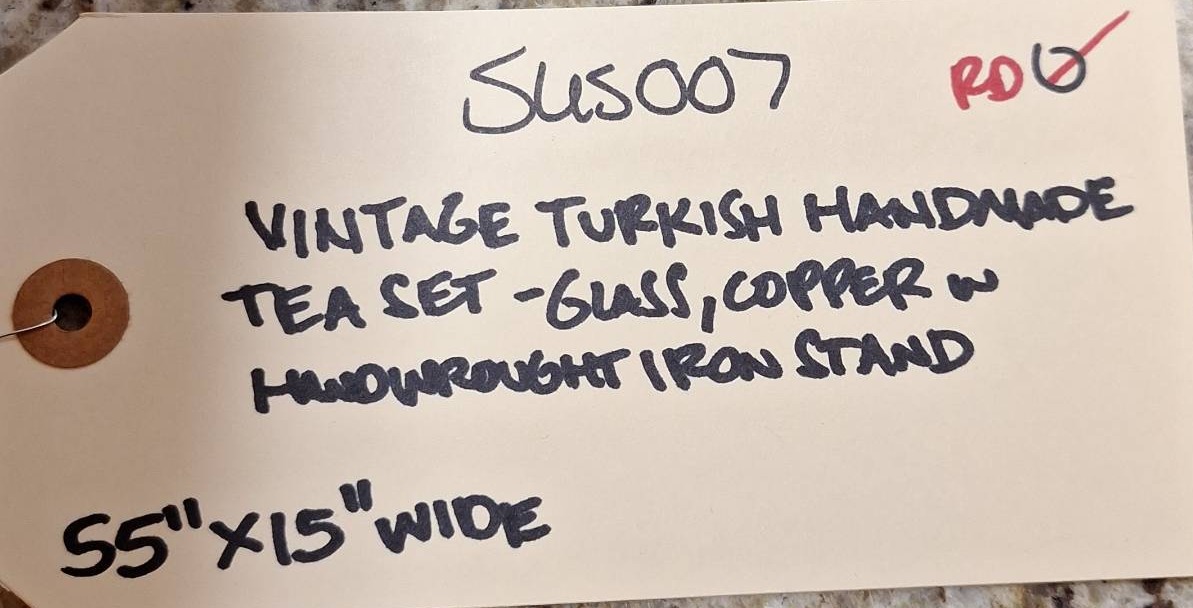 SUS007
RD
VINTAGE TURKISH HANDMADE
TEA SET - GLASS, COPPER W
HANDWROUGHT IRON STAND
55" X 15" WIDE